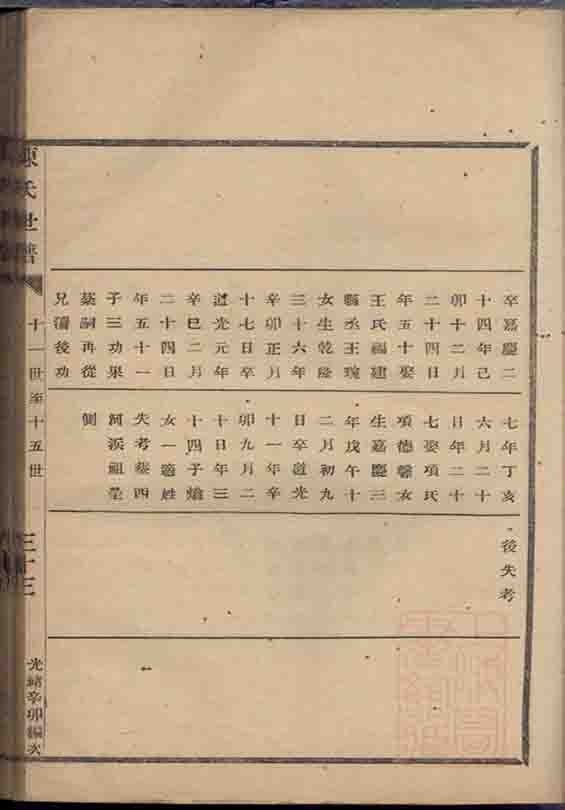 卒嘉慶二
十四年己
卯十二月
二十四日
年五十娶
王氏福建
縣丞王琬
女生乾隆
三十六年
辛卯正月
十七日卒
道光元年
辛巳二月
二十四日
年五十一
子三功果
棻嗣再從
兄濤後功
七年丁亥
六月二十
日年二十
七娶項氏
項德馨女
生嘉慶三
年戊午十
二月初九
日卒道光
十一年辛
卯九月二
十日年三
十四子
女一適姓
失考葬四
河浜祖塋
側
後失考
陳氏世譜
十一世至十五世
三十三
光緒辛卯編次